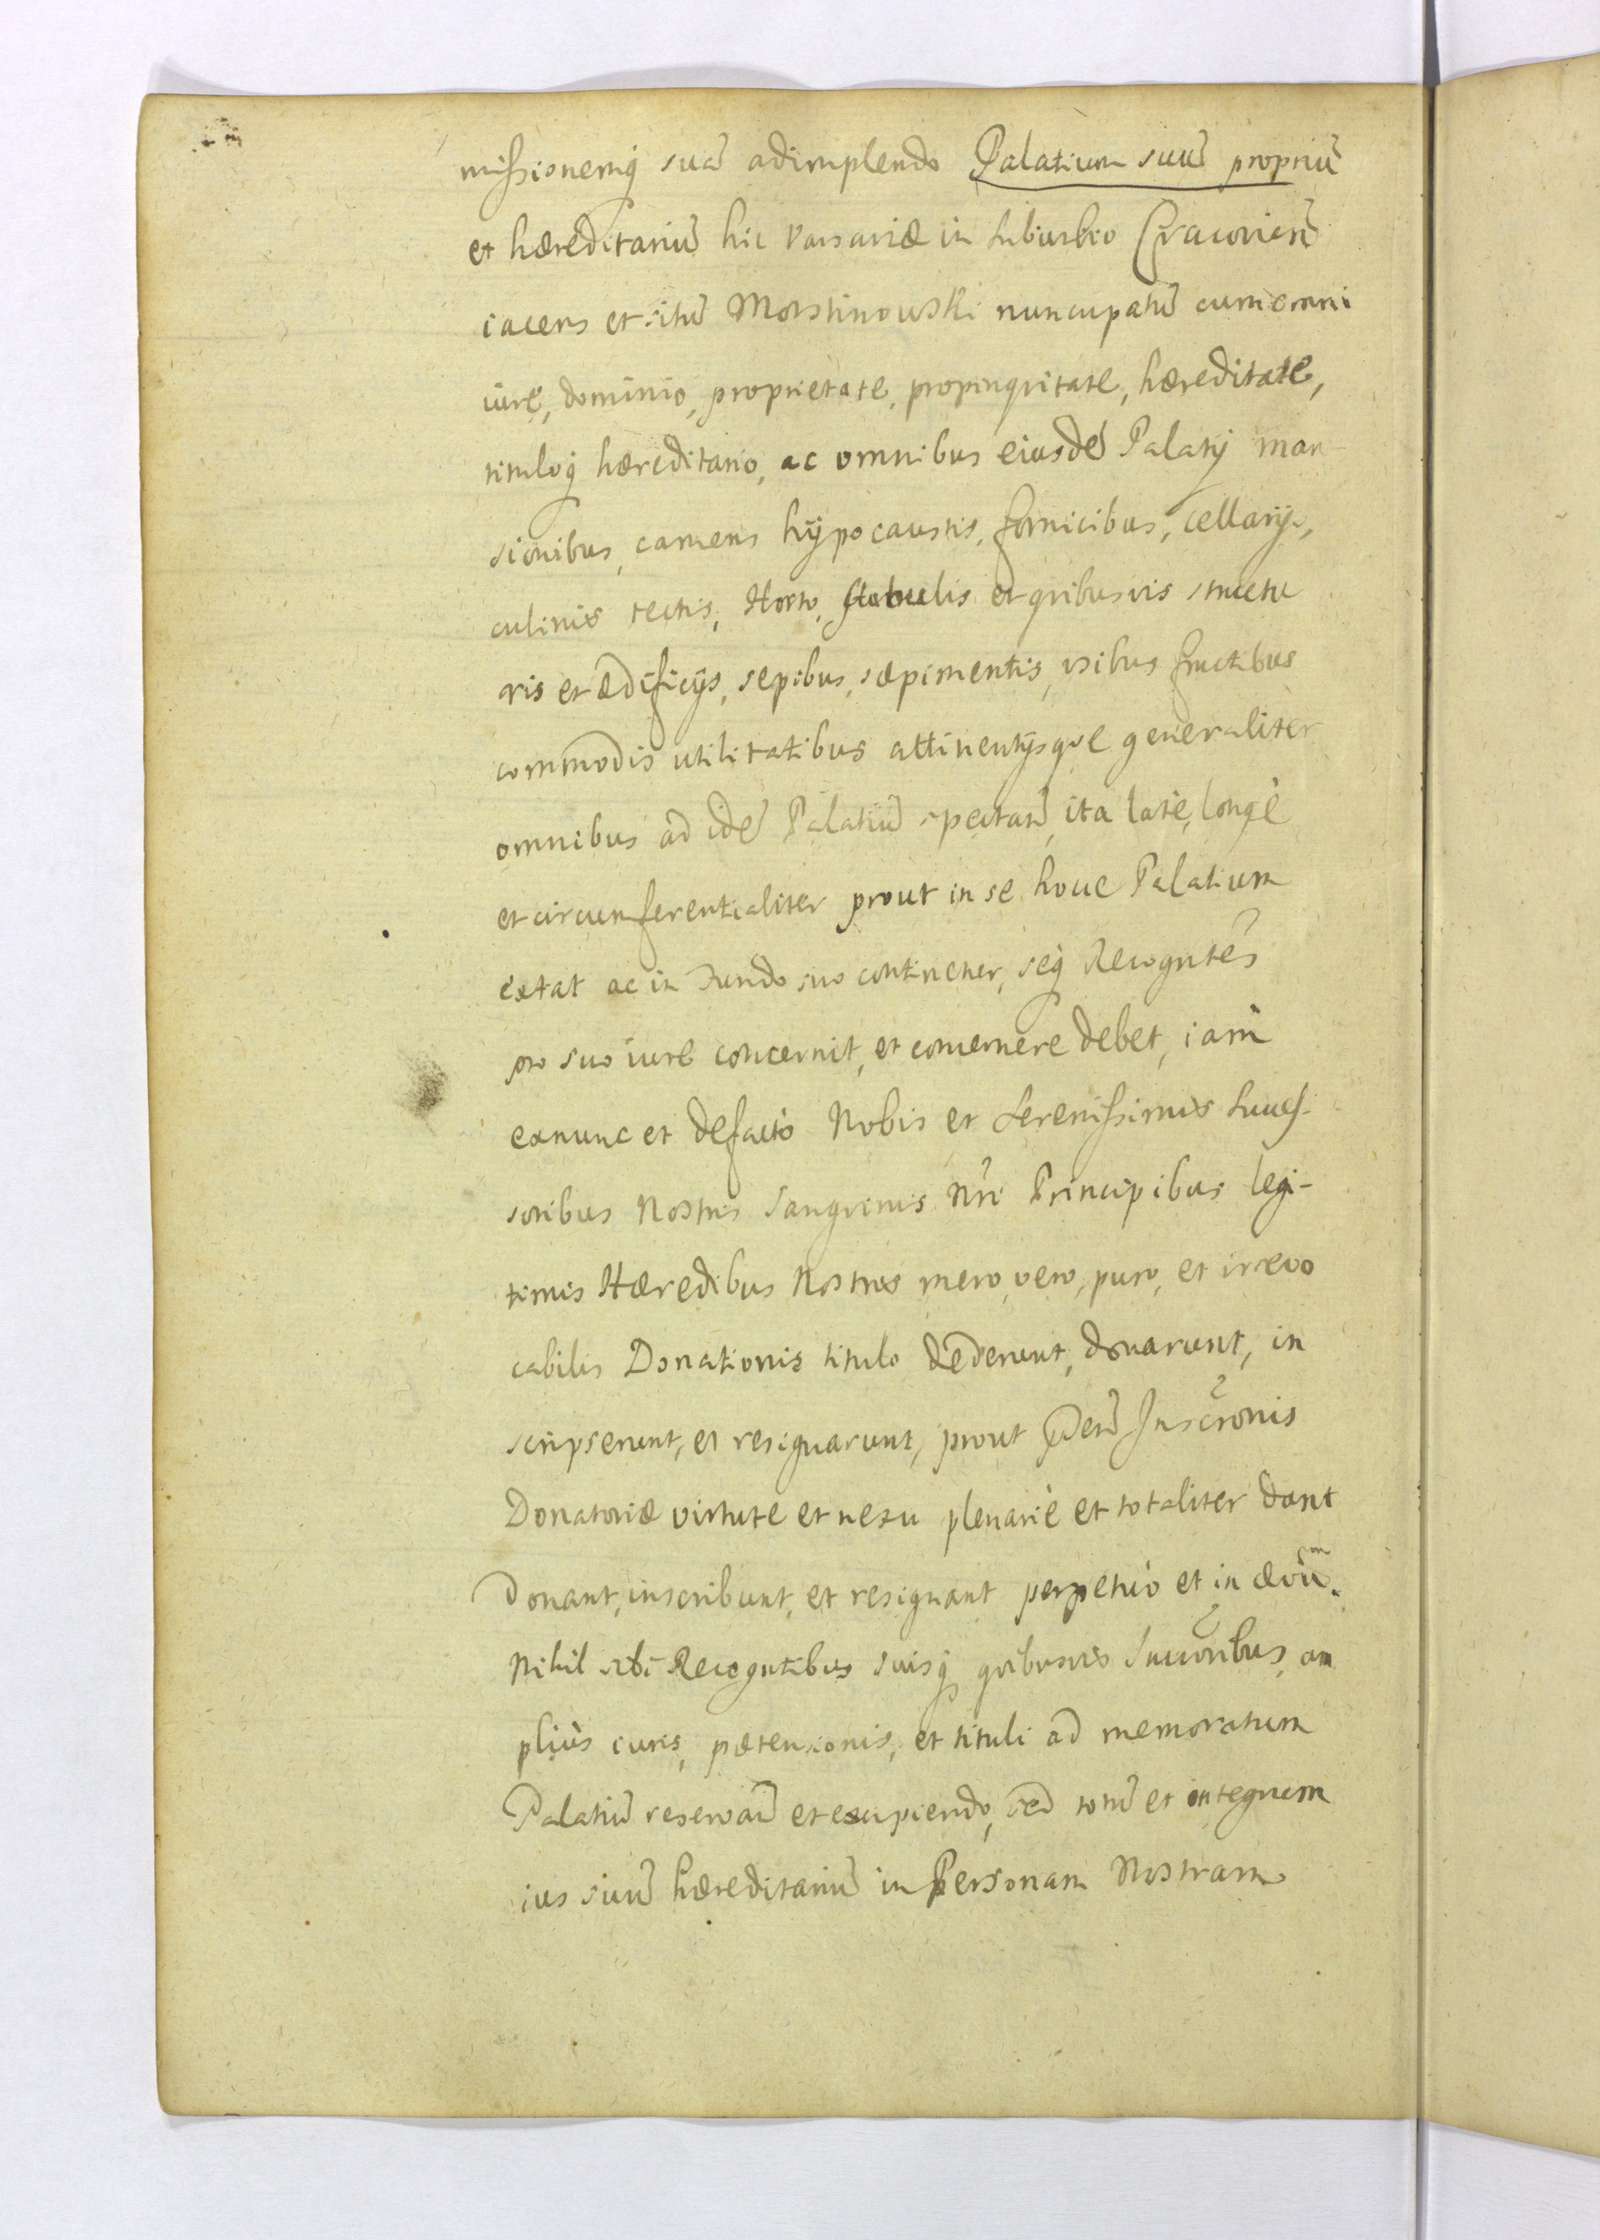 missionemq̃ suã adimplendo Palatium suũ propriũ
et hæreditariũ hic Varsaviæ in suburbio Cracovien̄
iacens et sitũ Morstinowski nuncupatũ cum omni
iure, dominio, proprietate, propinqvitate, hæreditate,
tituloq̃ hæreditario, ac omnibus eiusdẽ Palatij man-
sionibus, cameris hÿpocaustis, fornicibus, cellarijs,
culinis tectis, Horto, stabulis et qvibusvis structu
ris et ædificijs, sepibus, sæpimentis, usibus fructibus
commodis utilitatibus attinentijsqve generaliter
omnibus ad idẽ Palatiũ spectan̄, ita latè, longè
et circumferentialiter prout in se hocce Palatium
extat ac in Fundo suo continetur, seq̃ Recognten̄s
pro suo iure concernit, et concernere debet, iam
exnunc et defacto Nobis et Serenissimis Succes-
soribus Nostris Sangvinis Nr̃i Principibus legi-
timis Hæredibus Nostris mero, vero, puro, et irrevo
cabilis Donationis titulo dederunt, donarunt, in
scripserunt, et resignarunt, prout p̃den̄ Inscr̃onis
Donatoriæ virtute et nexu plenariè et totaliter dant
Donant, inscribunt, et resignant perpetuò et in ævũm.
Nihil sibi Recogntibus suisq̃ qvibusvis Succoribus, am
pliùs iuris, prætensionis, et tituli ad memoratum
Palatiũ reservan̄ et excipiendo, sed totũ et integrum
ius suũ hæreditariũ in Personam Nostram